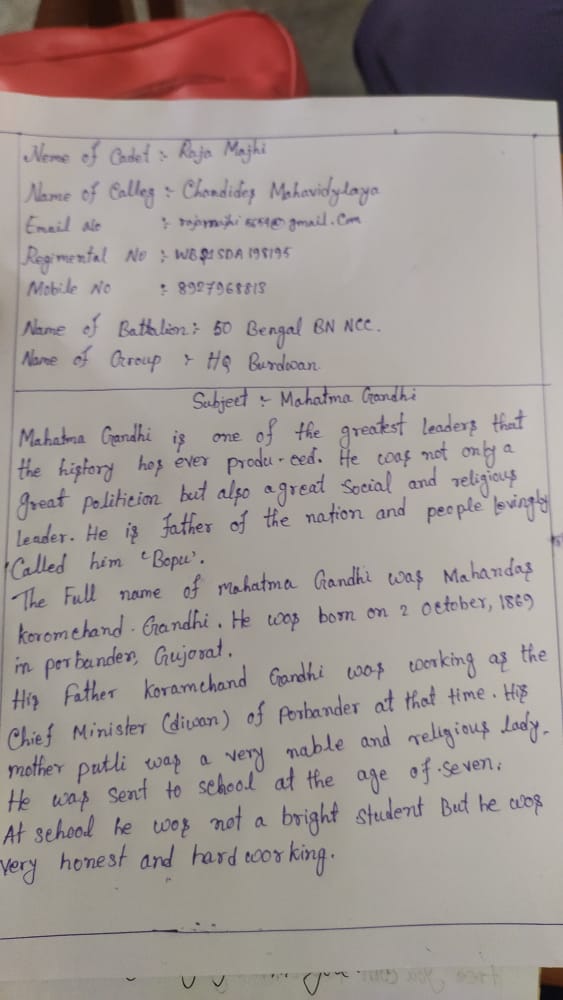 Neme of Cadet :- Raja Majhi
Name of Colleg :- Chandidas Mahavidylaya
Email No : @gmail.Com
Regimental No : SDA 198195
Mobile No : 8927968813
Name of Battalion :- 50 Bengal BN NCC.
Name of Group :- HQ Burdwan
Subject :- Mahatma Gandhi
Mahatma Gandhi is one of the greatest leaders that
the history has ever produ-ced. He was not only a
great politicion but also a great Social and religious
Leader. He is father of the nation and people lovingly
Called him 'Bapu'.
The Full name of mahatma Gandhi was Mahandas
koromchand Gandhi. He was born on 2 october, 1869
in porbander, Gujorat.
His Father koramchand Gandhi was working as the
Chief Minister (diwan) of Porbander at that time. His
mother putli was a very nable and religious lady.
He was sent to school at the age of seven.
At school he was not a bright student But he was
very honest and hard working.